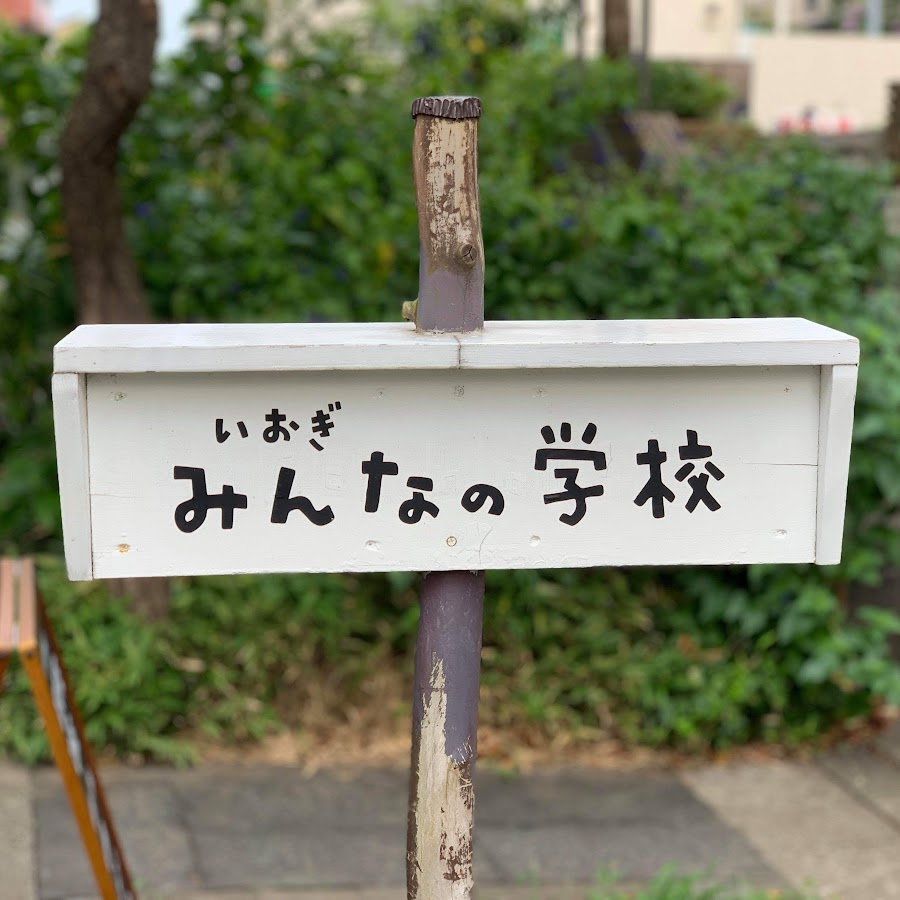 いおぎ
みんなの学校